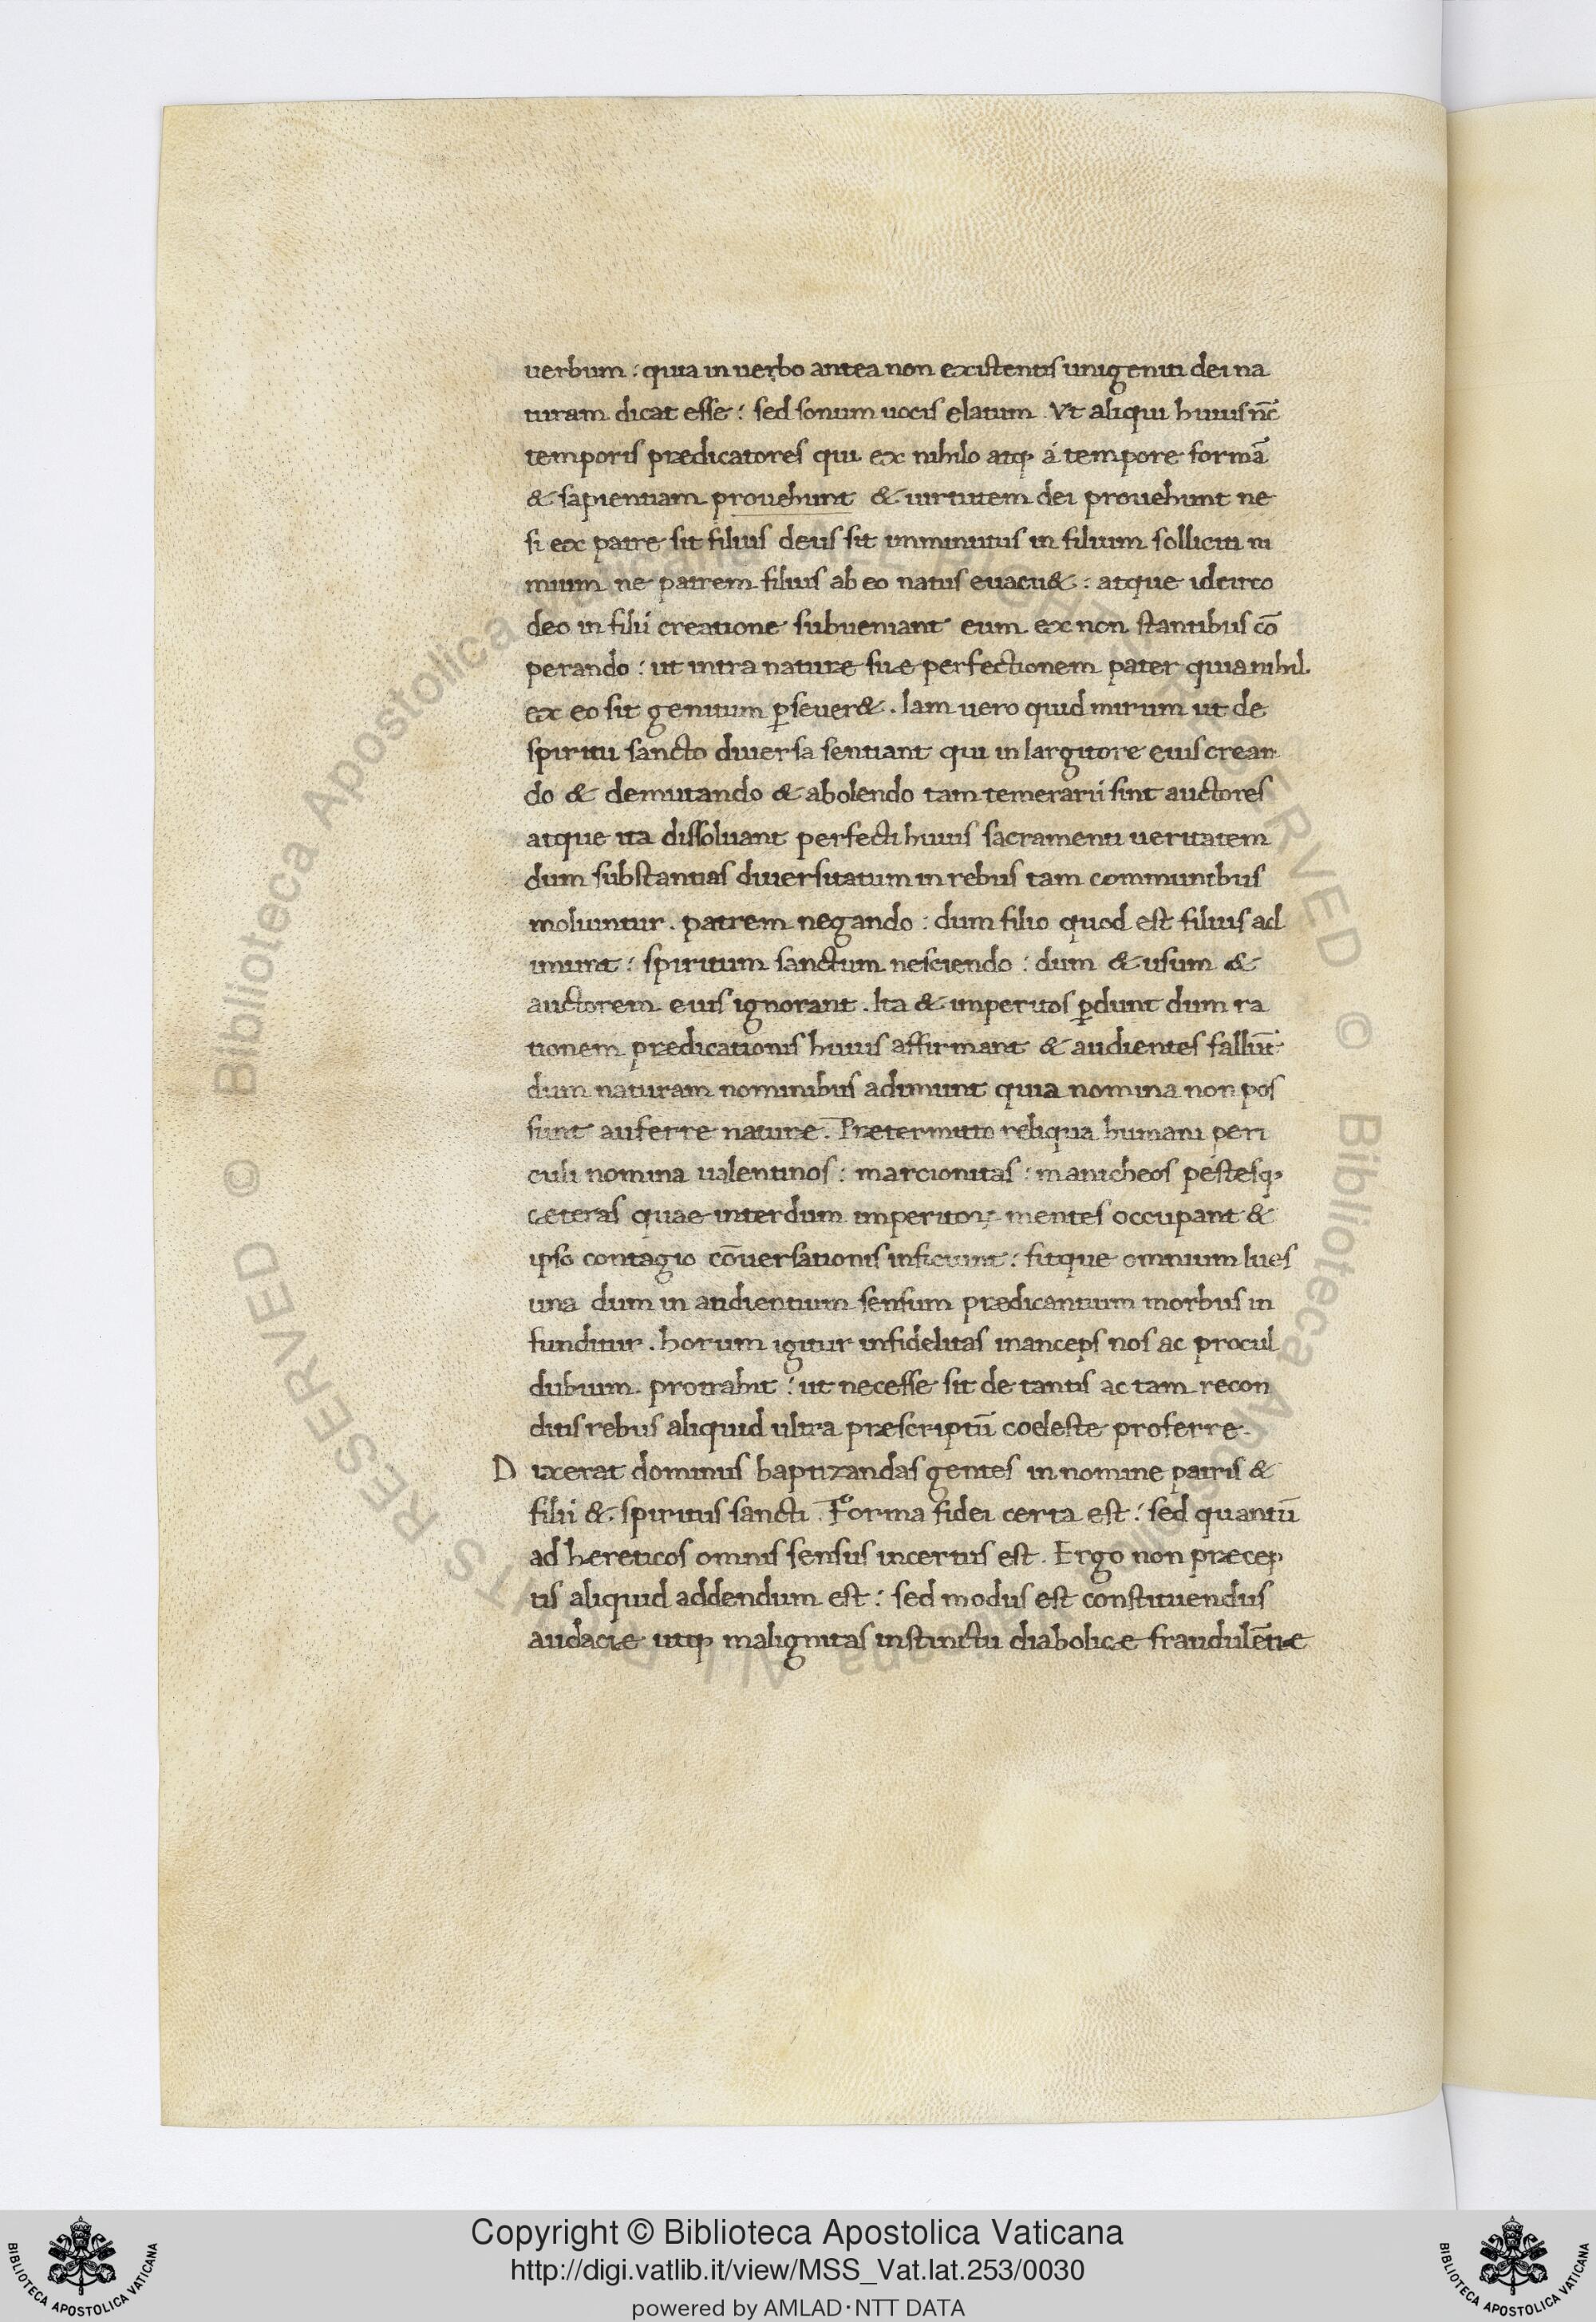 uerbum : quia in uerbo antea non existentis unigeniti dei na
turam dicat esse : sed sonum uocis elatum Vt aliqui huius nc̄
temporis prædicatores qui ex nihilo atq; á tempore formā
& sapientiam prouehunt & uirtutem dei prouehunt ne
si ex patre sit filius deus sit imminutus in filium solliciti ni
mium ne patrem filius ab eo natus euacu& : atque idcirco
deo in filii creatione subueniant eum ex non stantibus cō
perando : ut intra naturæ suæ perfectionem pater quia nihil
ex eo sit genitum ꝑseuer& . Iam uero quid mirum ut de
spiritu sancto diuersa sentiant qui in largitore eius crean
do & demutando & abolendo tam temerarii sint auctores
atque ita dissoluant perfecti huius sacramenti ueritatem
dum substantias diuersitatum in rebus tam communibus
moliuntur . patrem negando : dum filio quod est filius ad
imunt : spiritum sanctum nesciendo : dum & usum &
auctorem eius ignorant . Ita & imperitos ꝑdunt dum ra
tionem prædicationis huius affirmant & audientes fallūt
dum naturam nominibus adimunt quia nomina non pos
sunt auferre naturæ . Prætermitto reliqua humani peri
culi nomina ualentinos : marcionitas : manicheos pestesq;
cæteras quae interdum imperitoꝝ mentes occupant &
ipso contagio cōuersationis inficiunt : fitque omnium lues
una dum in audientium sensum prædicantium morbus in
funditur . horum igitur infidelitas in anceps nos ac procul
dubium protrahit : ut necesse sit de tantis ac tam recon
ditis rebus aliquid ultra præscriptū coeleste proferre .
D ixerat dominus baptizandas gentes in nomine patris &
filii & spiritus sancti . Forma fidei certa est : sed quantū
ad hæreticos omnis sensus incertus est . Ergo non præcep
tis aliquid addendum est : sed modus est constituendus
audaciæ utq; malignitas instinctu diabolicæ fraudulētiæ
Copyright © Biblioteca Apostolica Vaticana
http://digi.vatlib.it/view/MSS_Vat.lat.253/0030
powered by AMLAD·NTT DATA